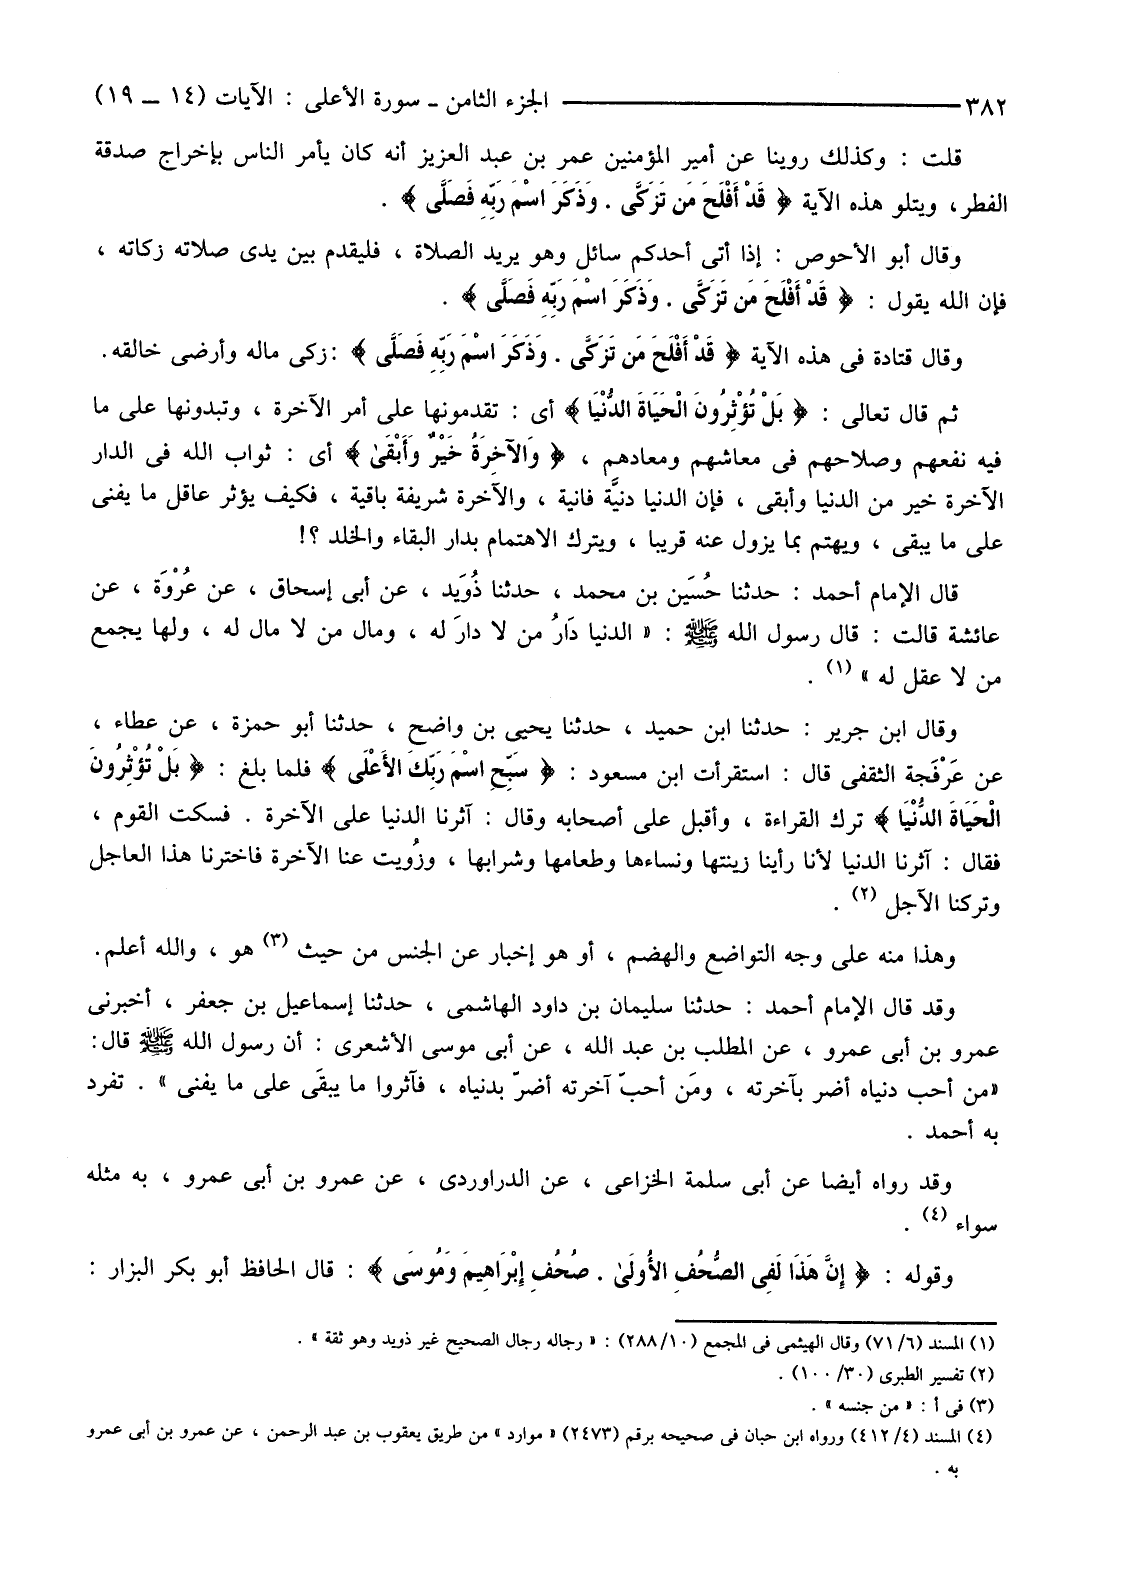 ٣٨٢ ـــــــ الجزء الثامن ـ سورة الأعلى : الآيات (١٤ ـ ١٩)
قلت : وكذلك روينا عن أمير المؤمنين عمر بن عبد العزيز أنه كان يأمر الناس بإخراج صدقة
الفطر، ويتلو هذه الآية ﴿ قَدْ أَفْلَحَ مَن تَزَكَّى . وَذَكَرَ اسْمَ رَبِّهِ فَصَلَّى ﴾ .
وقال أبو الأحوص : إذا أتى أحدكم سائل وهو يريد الصلاة ، فليقدم بين يدى صلاته زكاته ،
فإن الله يقول : ﴿ قَدْ أَفْلَحَ مَن تَزَكَّى . وَذَكَرَ اسْمَ رَبِّهِ فَصَلَّى ﴾ .
وقال قتادة فى هذه الآية ﴿ قَدْ أَفْلَحَ مَن تَزَكَّى . وَذَكَرَ اسْمَ رَبِّهِ فَصَلَّى ﴾ :زكى ماله وأرضى خالقه.
ثم قال تعالى : ﴿ بَلْ تُؤْثِرُونَ الْحَيَاةَ الدُّنْيَا ﴾ أى : تقدمونها على أمر الآخرة ، وتبدونها على ما
فيه نفعهم وصلاحهم فى معاشهم ومعادهم ، ﴿ وَالآخِرَةُ خَيْرٌ وَأَبْقَىٰ ﴾ أى : ثواب الله فى الدار
الآخرة خير من الدنيا وأبقى ، فإن الدنيا دنيَّة فانية ، والآخرة شريفة باقية ، فكيف يؤثر عاقل ما يفنى
على ما يبقى ، ويهتم بما يزول عنه قريبا ، ويترك الاهتمام بدار البقاء والخلد ؟!
قال الإمام أحمد : حدثنا حُسَين بن محمد ، حدثنا ذُوَيد ، عن أبى إسحاق ، عن عُرْوَة ، عن
عائشة قالت : قال رسول الله ﷺ : « الدنيا دَارُ من لا دارَ له ، ومال من لا مال له ، ولها يجمع
من لا عقل له » (١) .
وقال ابن جرير : حدثنا ابن حميد ، حدثنا يحيى بن واضح ، حدثنا أبو حمزة ، عن عطاء ،
عن عَرْفَجة الثقفى قال : استقرأت ابن مسعود : ﴿ سَبِّحِ اسْمَ رَبِّكَ الأَعْلَى ﴾ فلما بلغ : ﴿ بَلْ تُؤْثِرُونَ
الْحَيَاةَ الدُّنْيَا ﴾ ترك القراءة ، وأقبل على أصحابه وقال : آثرنا الدنيا على الآخرة . فسكت القوم ،
فقال : آثرنا الدنيا لأنا رأينا زينتها ونساءها وطعامها وشرابها ، وزُويت عنا الآخرة فاخترنا هذا العاجل
وتركنا الآجل (٢) .
وهذا منه على وجه التواضع والهضم ، أو هو إخبار عن الجنس من حيث (٣) هو ، والله أعلم.
وقد قال الإمام أحمد : حدثنا سليمان بن داود الهاشمى ، حدثنا إسماعيل بن جعفر ، أخبرنى
عمرو بن أبى عمرو ، عن المطلب بن عبد الله ، عن أبى موسى الأشعرى : أن رسول الله ﷺ قال:
«من أحب دنياه أضر بآخرته ، ومَن أحبّ آخرته أضرّ بدنياه ، فآثروا ما يبقَى على ما يفنى » . تفرد
به أحمد .
وقد رواه أيضا عن أبى سلمة الخزاعى ، عن الدراوردى ، عن عمرو بن أبى عمرو ، به مثله
سواء (٤) .
وقوله : ﴿ إِنَّ هَذَا لَفِى الصُّحُفِ الأُولَىٰ . صُحُفِ إِبْرَاهِيمَ وَمُوسَى ﴾ : قال الحافظ أبو بكر البزار :
(١) المسند (٧١/٦) وقال الهيثمى فى المجمع (٢٨٨/١٠) : « رجاله رجال الصحيح غير ذويد وهو ثقة » .
(٢) تفسير الطبرى (١٠٠/٣٠) .
(٣) فى أ : « من جنسه » .
(٤) المسند (٤١٢/٤) ورواه ابن حبان فى صحيحه برقم (٢٤٧٣) « موارد » من طريق يعقوب بن عبد الرحمن ، عن عمرو بن أبى عمرو
به .